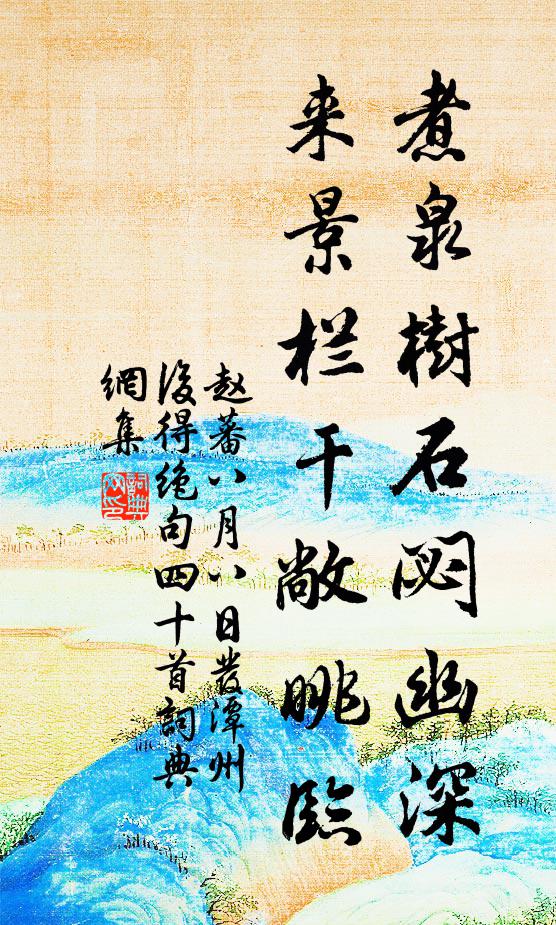 煮泉樹石閟幽深
来景栏干敞眺临
赵蕃八月八日发潭州
後得绝句四十首詞典
網集
詞典